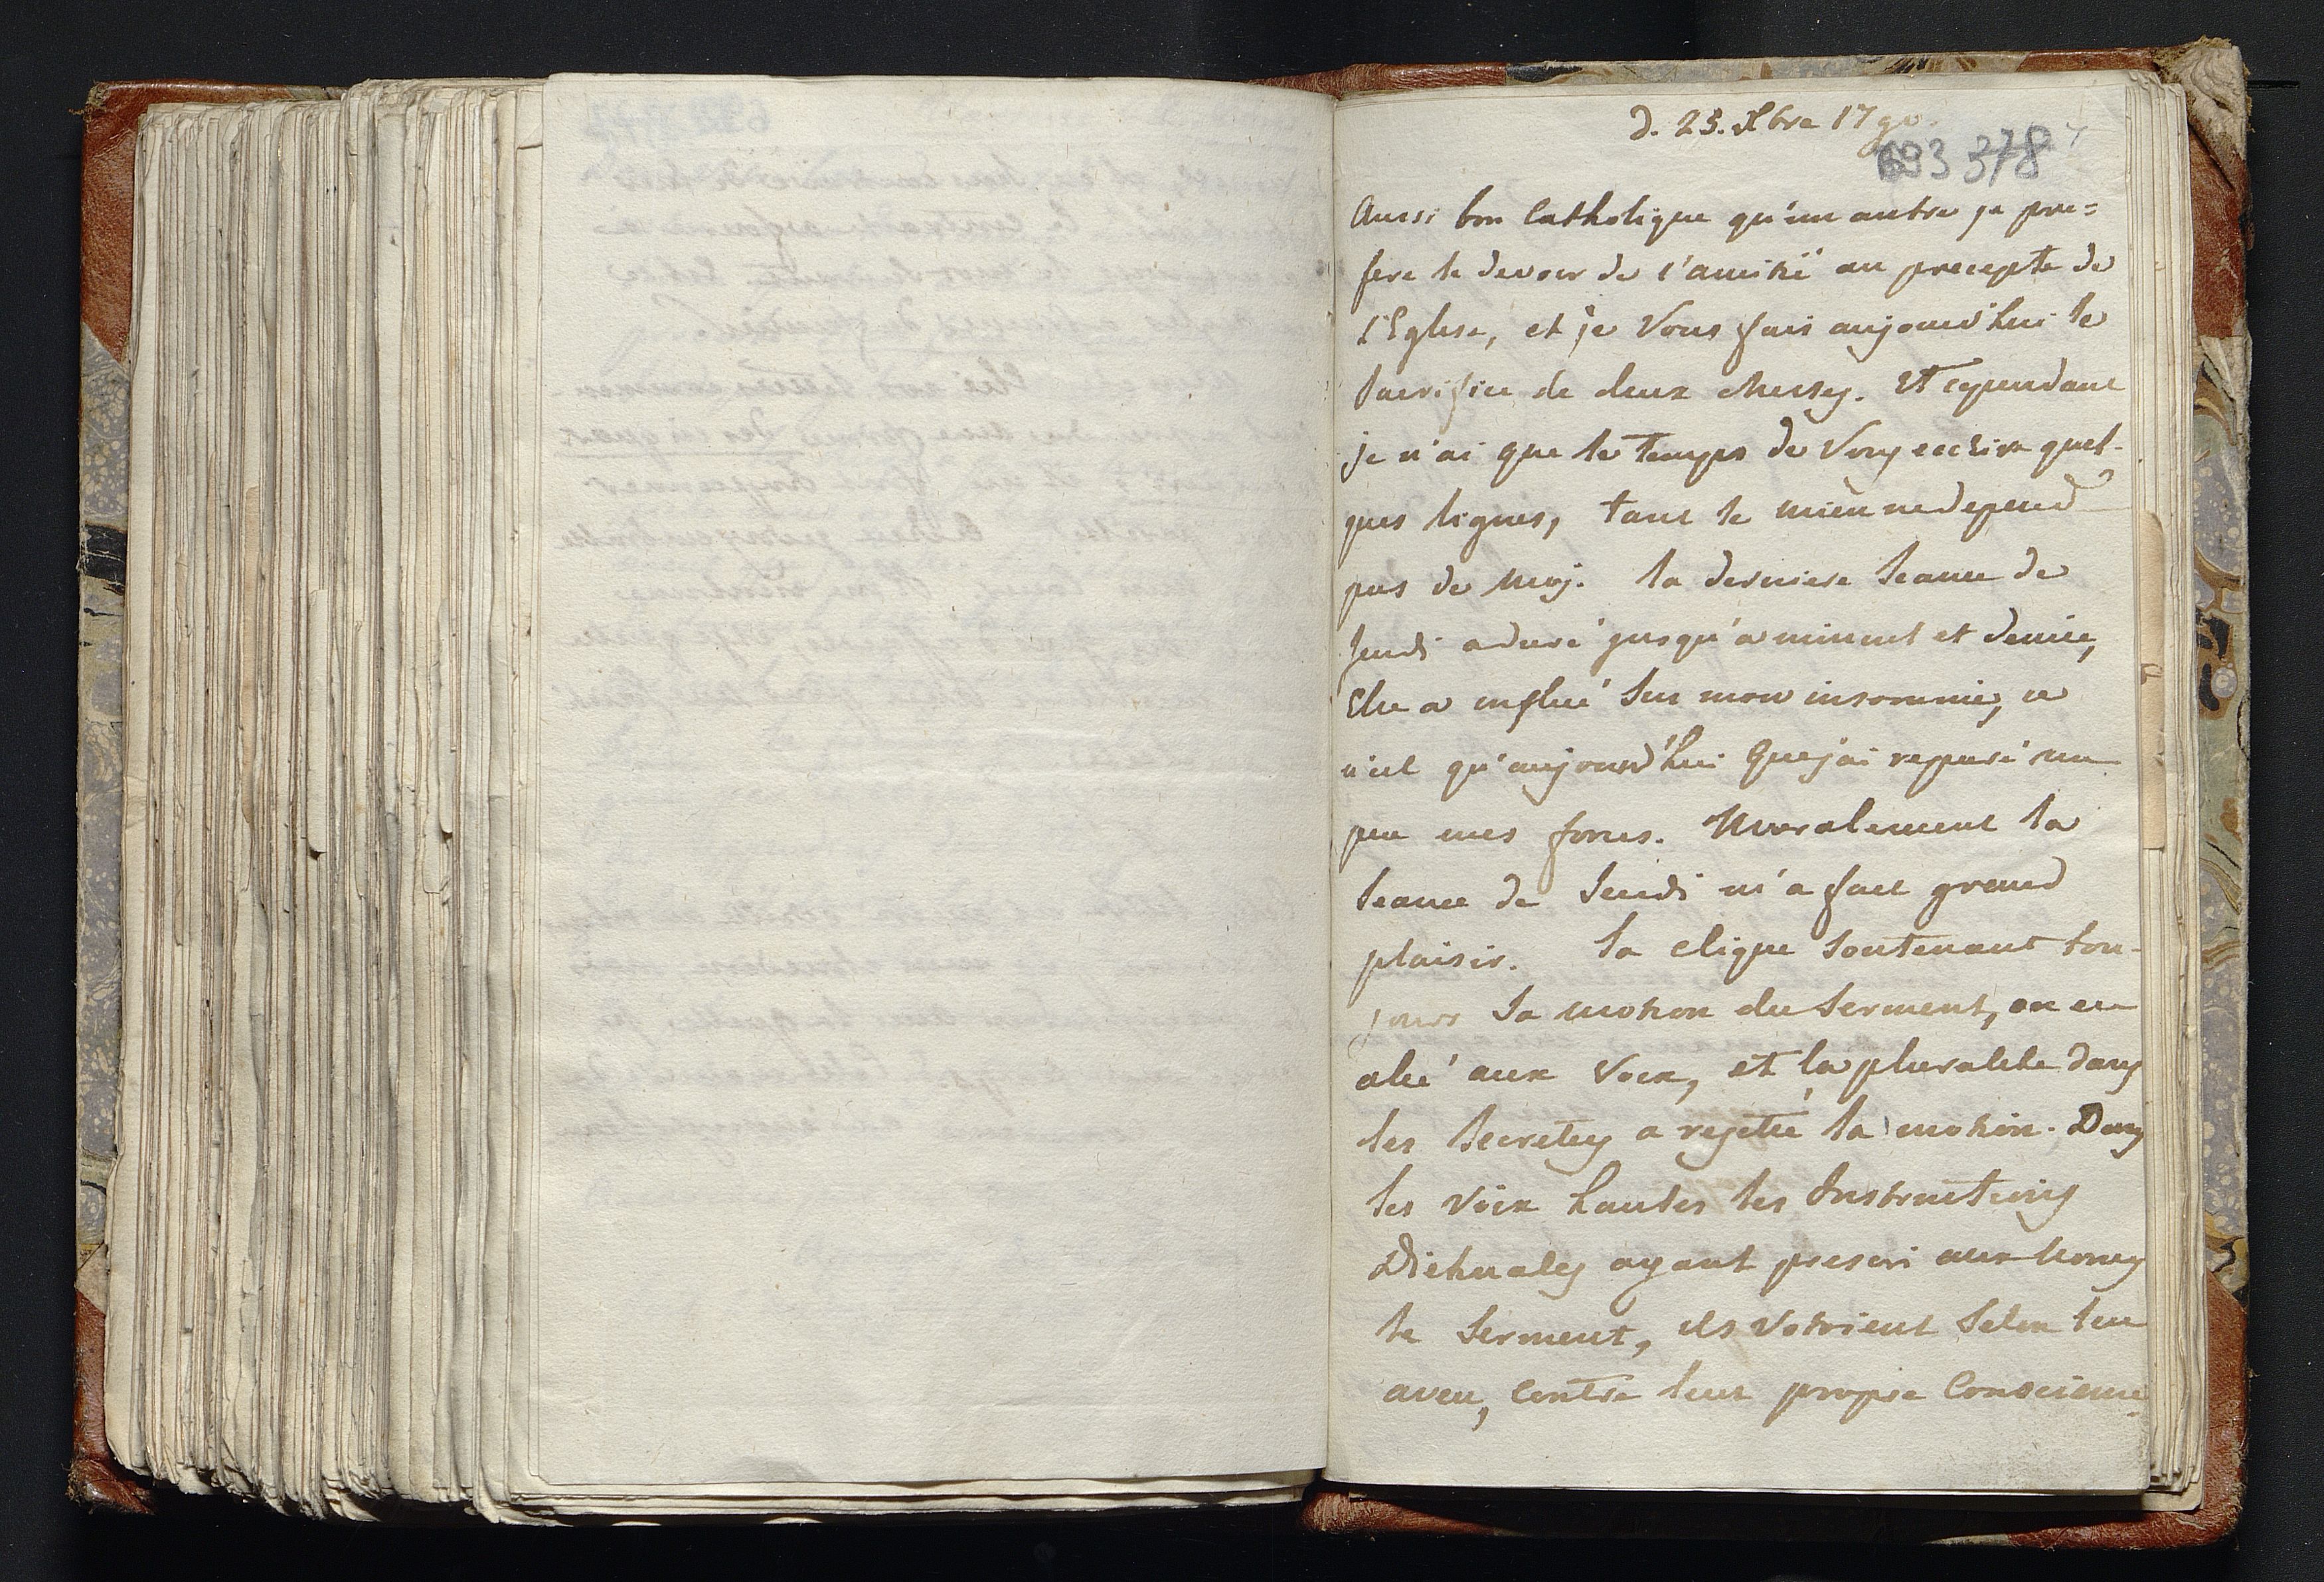 d. 25. Xbre 1790.
693 378
Aussi bon Catholique qu'un autre je pre=
fere le devoir de l'amitié au precepte de
l'Eglise, et je Vous fais aujourd'hui le
sacrifice de deux Messes. Et cependant
je n'ai que le temps de Vous ecrire quel-
ques lignes, tant le mien ne depend
pas de moj. la derniere seance de
Jeudi a duré jusqu'a minuit et demie,
Elle a influé sur mon insomnie, ce
n'est qu'aujourd'hui que j'ai reparé un
peu mes forces. Moralement la
seance de Jeudi m'a fait grand
plaisir. la clique soutenant tou-
jours sa motion du serment, on en
allé aux Voix, et la pluralite dans
les secretes a rejetté la motion. Dans
les Voix hautes les Instructions
Dietinales ayant prescri aux Nonces
le serment, ils votoient selon leu
aveu, contre leur propre Conscience